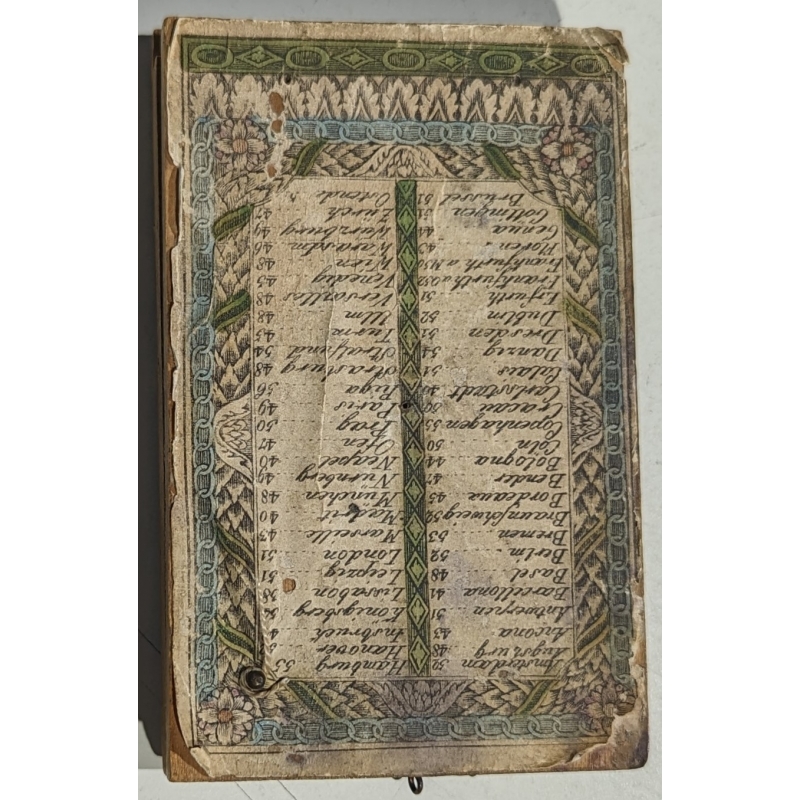 Amsterdam 52
Augsburg 48
Ancona 43
Antwerpen 51
Barcellona 41
Basel 48
Berlin 52
Bremen 53
Braunschweig 52
Bordeaux 45
Bender 47
Bologna 44
Cöln 50
Copenhagen 55
Cracau 50
Carlsstadt
Calais 51
Danzig 54
Dresden 51
Dublin
Erfurth 51
Frankfurth a O 52
Frankfurth a M 50
Floren 43
Genua 44
Göttingen 51
Brüssel 51
Hamburg 53
Hanover
Insbruck
Königsberg
Lissabon 38
Leipzig 51
London 51
Marseille 43
Madrit 40
München 48
Nürnberg 49
Neapel 40
Ofen 47
Prag 50
Paris 49
Riga 56
Strasburg 48
Stralsund 54
Turin 45
Ulm 48
Versailles 48
Venedig 45
Wien 48
Warasdin 46
Würzburg 49
Zürich 47
Ostende